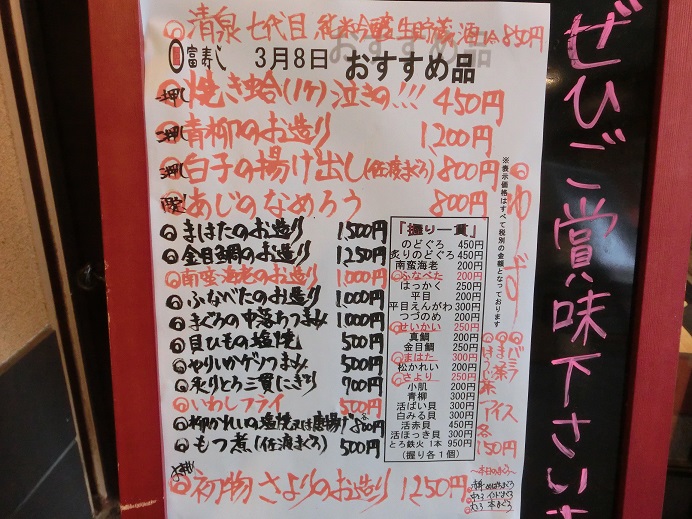 清泉 七代目 純米吟醸生貯蔵酒 850円
富寿し 3月8日 おすすめ品
一押し 焼き蛤(1ケ)泣きの!!! 450円
二押し 青柳のお造り 1,200円
三押し 白子の揚げ出し(佐渡まぐろ) 800円
あじのなめろう 800円
まはたのお造り 1,500円
金目鯛のお造り 1,250円
南蛮海老のお造り 1,000円
ふなべたのお造り 1,000円
まぐろの中落ちつまみ 1,000円
貝ひもの塩焼 500円
やりいかゲソつまみ 500円
炙りとろ三貫にぎり 700円
いわしフライ 500円
柳かれいの塩焼又は唐揚げ 800円
もつ煮(佐渡まぐろ) 500円
初物 さよりのお造り 1,250円
「握り一貫」
のどぐろ 450円
炙りのどぐろ 450円
南蛮海老 200円
ふなべた 200円
はっかく 250円
平目 200円
平目えんがわ 300円
つづのめ 200円
せいかい 250円
真鯛 200円
金目鯛 250円
まはた 300円
松かれい 200円
さより 250円
小肌 200円
青柳 300円
活ばい貝 300円
白みる貝 300円
活赤貝 450円
活ほっき貝 300円
とろ鉄火 1本 950円
(握り各1個)
※表示価格はすべて税別の金額となっております
バニラ
ほうじ茶
アイス
各
150円
〜本日のまぐろ〜
ぜひご賞味下さいま